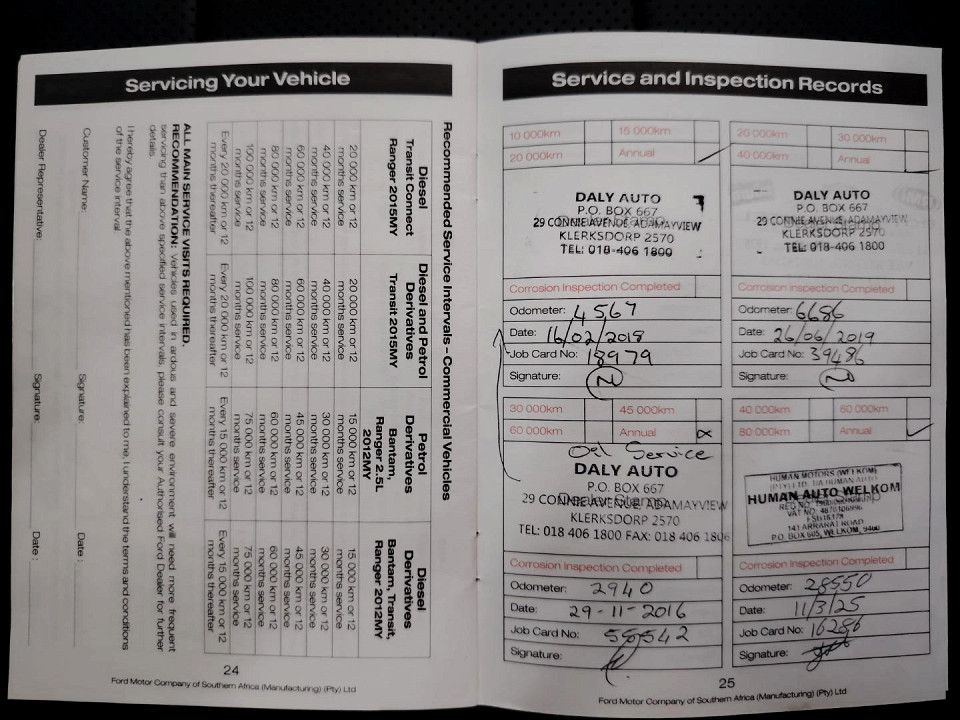 Servicing Your Vehicle
Recommended Service Intervals – Commercial Vehicles
Diesel
Transit Connect
Ranger 2015MY
20 000 km or 12
months service
40 000 km or 12
months service
60 000 km or 12
months service
80 000 km or 12
months service
100 000 km or 12
months service
Every 20 000 km or 12
months thereafter
Diesel and Petrol
Derivatives
Transit 2015MY
20 000 km or 12
months service
40 000 km or 12
months service
60 000 km or 12
months service
80 000 km or 12
months service
100 000 km or 12
months service
Every 20 000 km or 12
months thereafter
Petrol
Derivatives
Bantam,
Ranger 2.5L
2012MY
15 000 km or 12
months service
30 000 km or 12
months service
45 000 km or 12
months service
60 000 km or 12
months service
75 000 km or 12
months service
Every 15 000 km or 12
months thereafter
Diesel
Derivatives
Bantam, Transit,
Ranger 2012MY
15 000 km or 12
months service
30 000 km or 12
months service
45 000 km or 12
months service
60 000 km or 12
months service
75 000 km or 12
months service
Every 15 000 km or 12
months thereafter
ALL MAIN SERVICE VISITS REQUIRED.
RECOMMENDATION: Vehicles used in ardous and severe environment will need more frequent
servicing than above specified service intervals, please consult your Authorised Ford Dealer for further
details.
I hereby agree that the above mentioned has been explained to me, I understand the terms and conditions
of the service interval.
Customer Name: Signature: Date :
Dealer Representative: Signature: Date :
24
Ford Motor Company of Southern Africa (Manufacturing) (Pty) Ltd
Service and Inspection Records
10 000km 15 000km
20 000km Annual
DALY AUTO
P.O. BOX 667
29 CONNIE AVENUE, ADAMAYVIEW
KLERKSDORP 2570
TEL: 018-406 1800
Corrosion Inspection Completed
Odometer: 4567
Date: 16/02/2018
Job Card No: 18979
Signature:
20 000km 30 000km
40 000km Annual
DALY AUTO
P.O. BOX 667
29 CONNIE AVENUE, ADAMAYVIEW
KLERKSDORP 2570
TEL: 018-406 1800
Corrosion Inspection Completed
Odometer: 6686
Date: 26/06/2019
Job Card No: 39486
Signature:
30 000km 45 000km
60 000km Annual
Oel Service
DALY AUTO
P.O. BOX 667
29 CONNIE AVENUE, ADAMAYVIEW
KLERKSDORP 2570
TEL: 018 406 1800 FAX: 018 406 1806
Corrosion Inspection Completed
Odometer: 2940
Date: 29-11-2016
Job Card No: 58542
Signature:
40 000km 60 000km
80 000km Annual
HUMAN MOTORS (WELKOM)
HUMAN AUTO WELKOM
141 ARRARAT ROAD
P.O. BOX 605, WELKOM, 9460
Corrosion Inspection Completed
Odometer: 28550
Date: 11/3/25
Job Card No: 16286
Signature:
25
Ford Motor Company of Southern Africa (Manufacturing) (Pty) Ltd